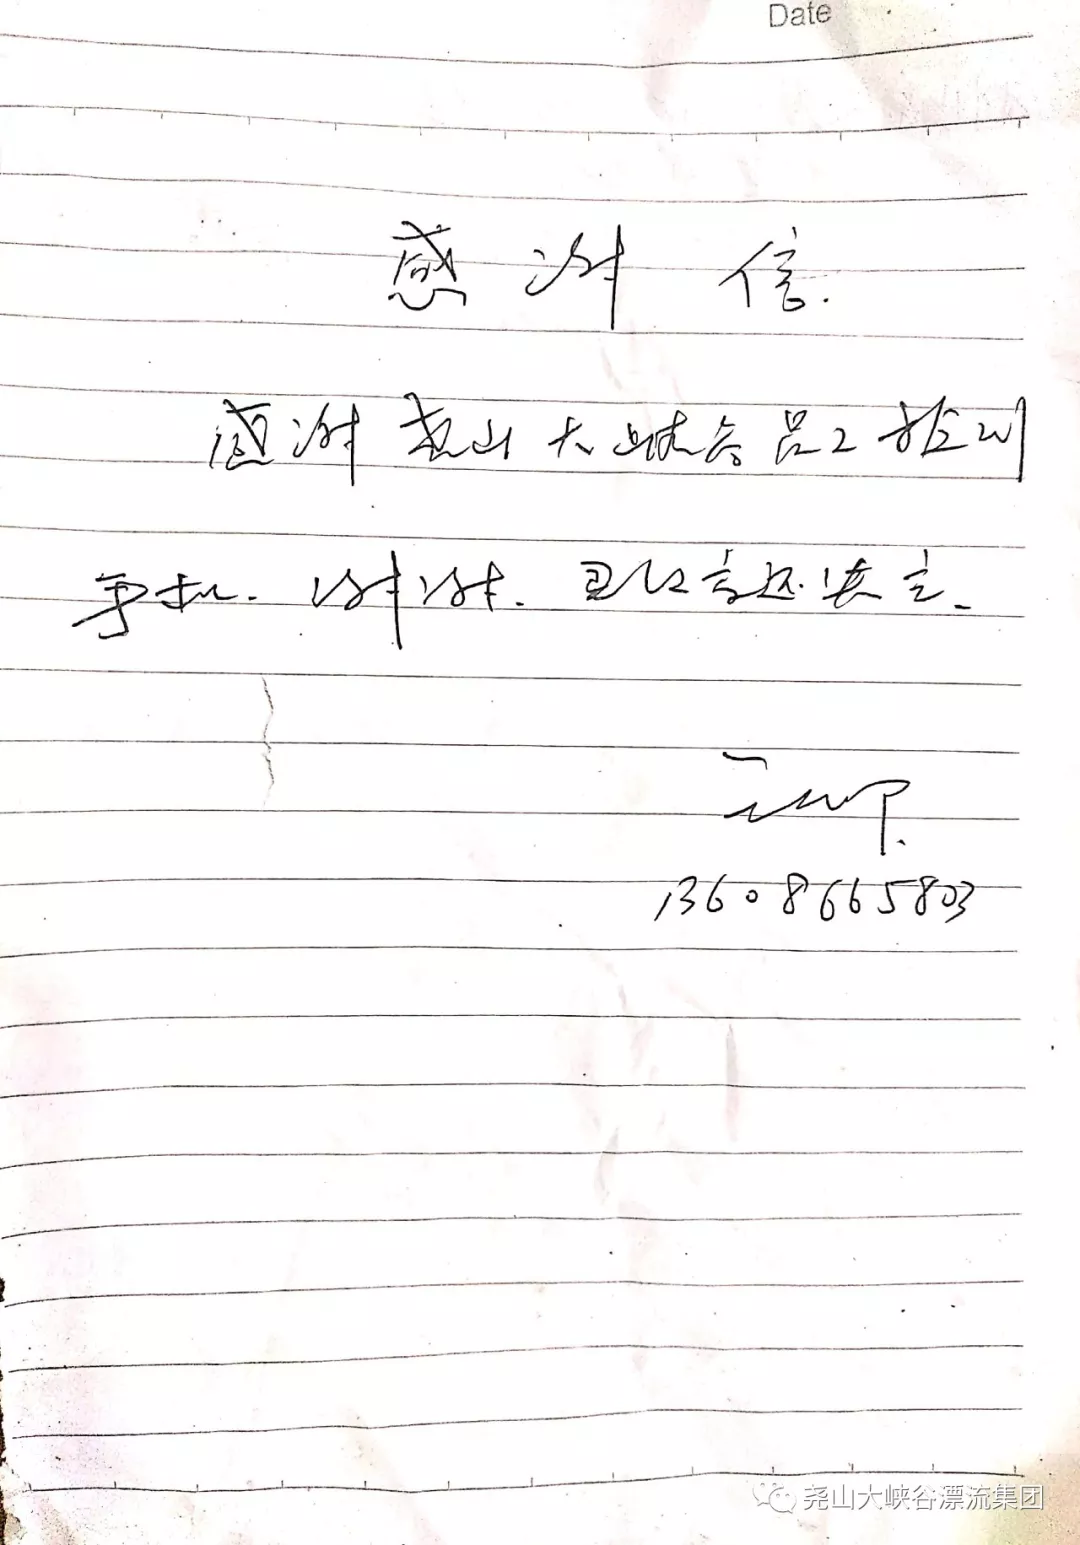 Date
感谢信.
感谢尧山大峡谷员工捡到
手机. 谢谢. 已经言还失主.
13608665803
尧山大峡谷漂流集团